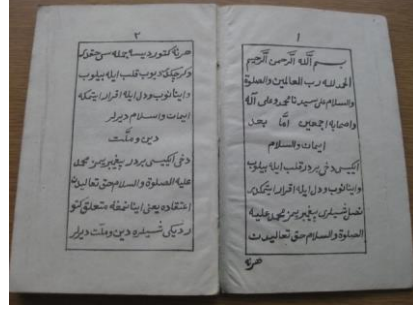 ١
بسم الله الرحمن الرحيم
الحمد لله رب العالمين والصلوة
والسلام على سيدنا محمد وعلى آله
واصحابه اجمعين امّا بعد
ايمان والسلام
ايكيسى دخى بردر قلب ايله بيلوب
واينانوب ودل ايله اقرار ايتمكدر
شيلرى پيغمبريمز محمد عليه
الصلوة والسلام حق تعاليدن
هرنه
٢
هرنه كتورديسه جمله سى حقدر
وكرچكدر ديوب قلب ايله بيلوب
واينانوب ودل ايله اقرار ايتمكه
ايمان واسلام ديرلر
دين وملّت
دخى ايكيسى بردر پيغمبريمز محمد
عليه الصلوة والسلام حق تعاليدن
اعتقاده يعنى اينانمغه متعلق كتو
ديكى شيلره دين وملت ديرلر